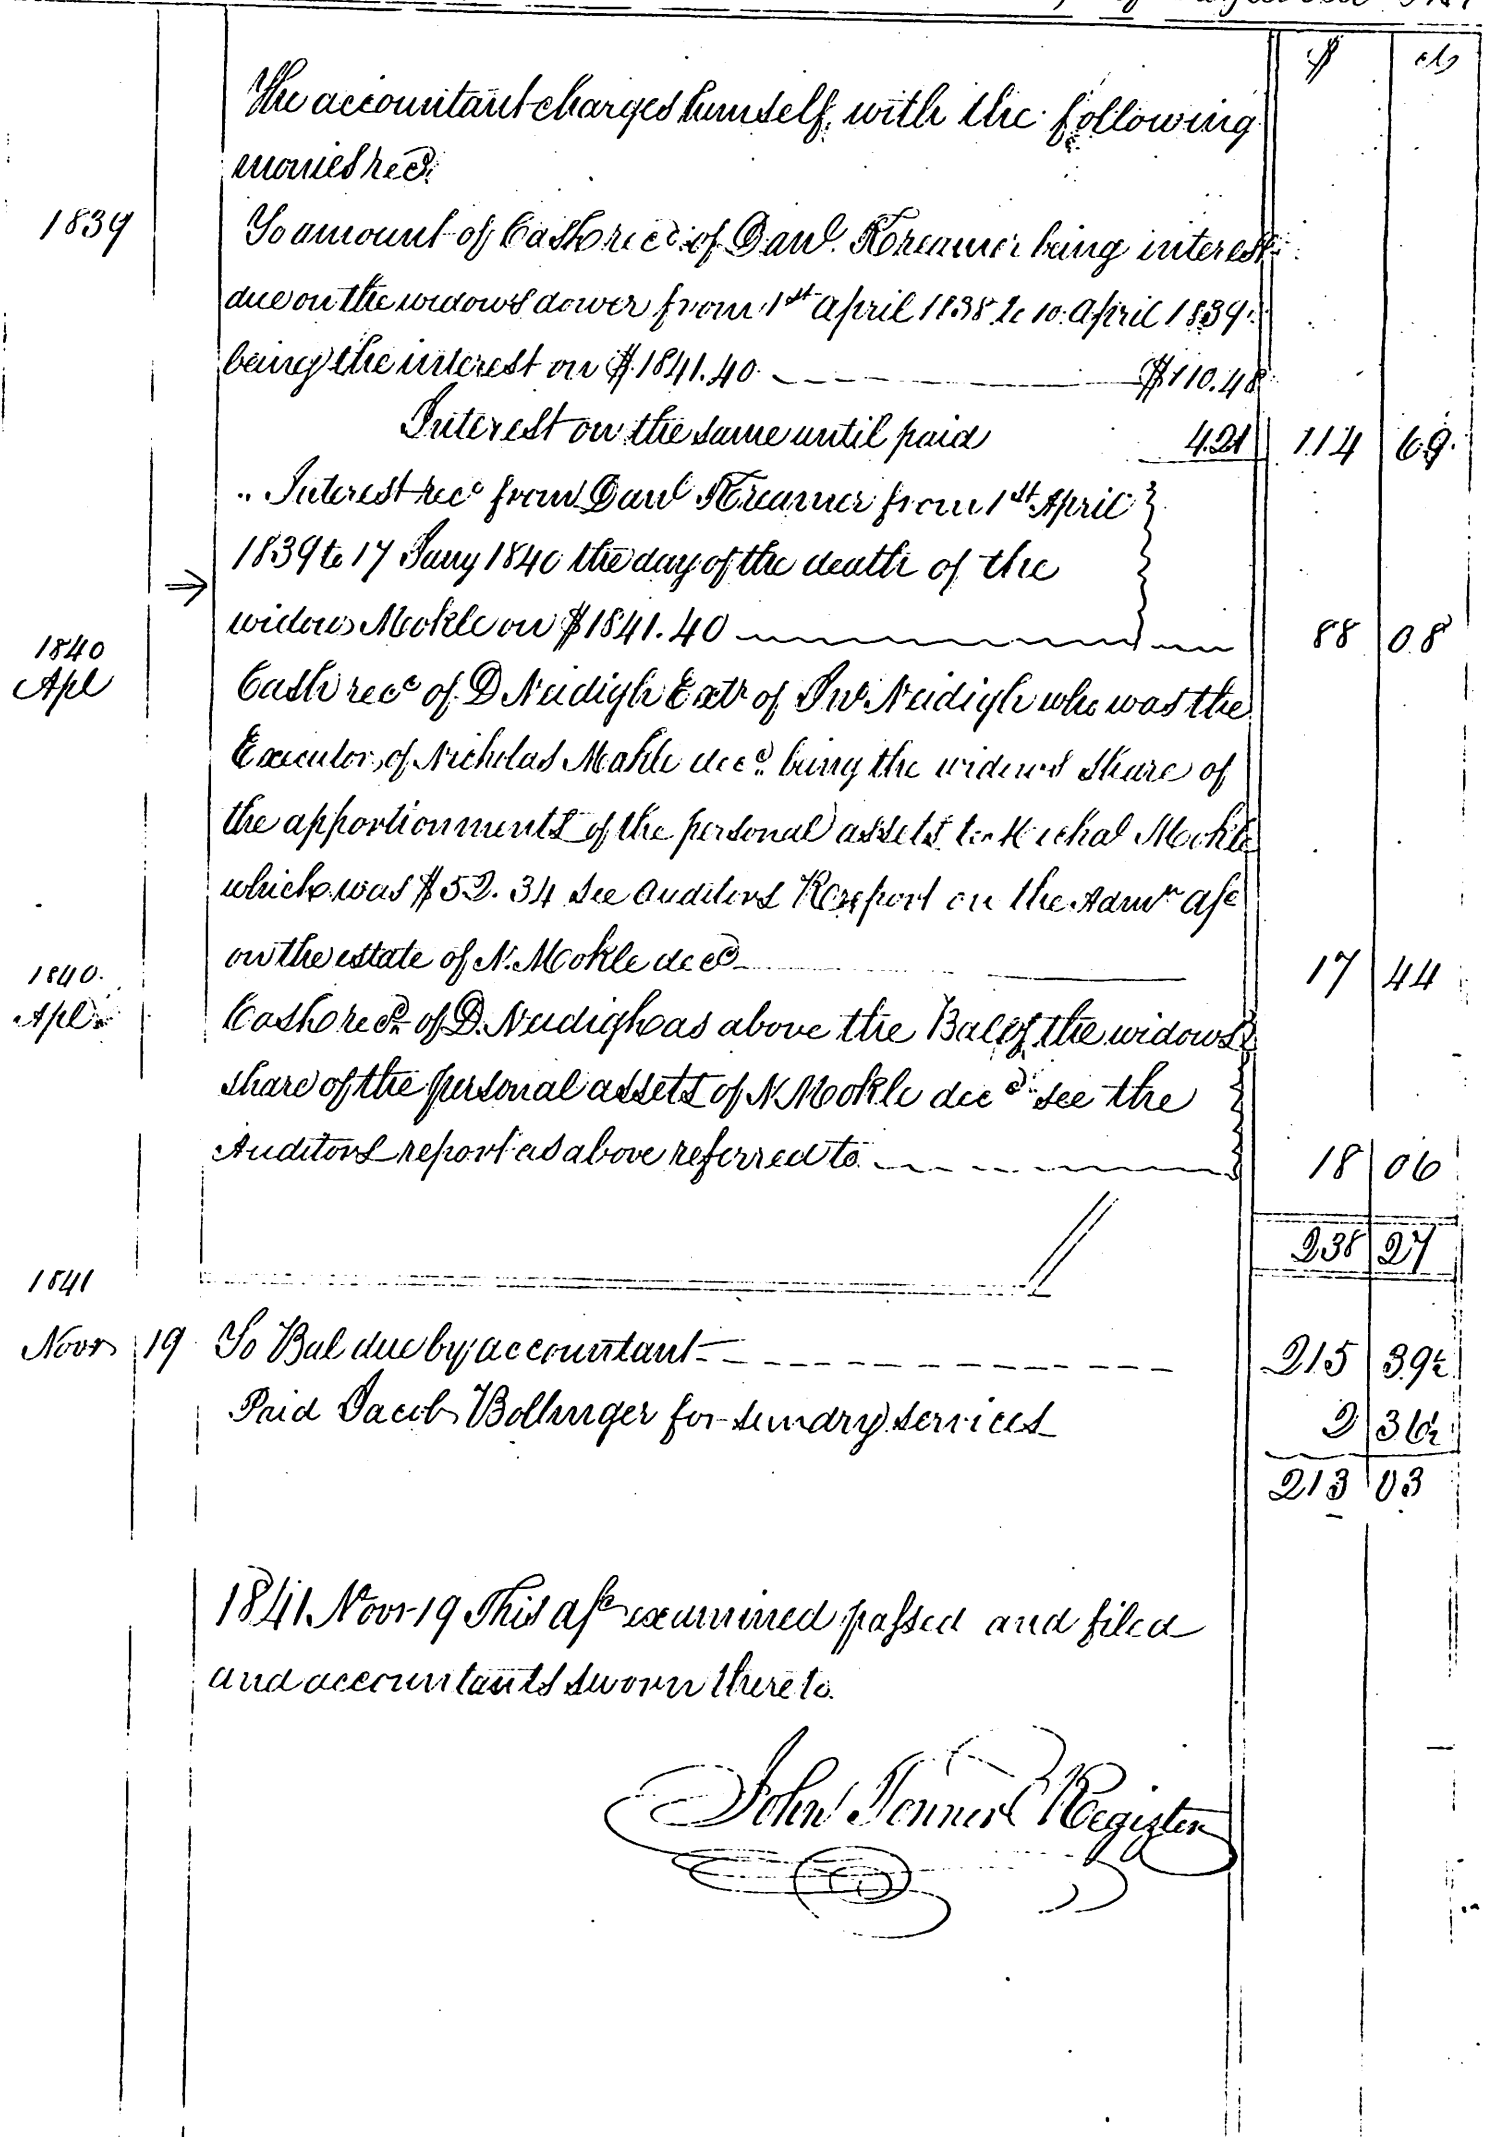 $ cts
The accountant charges himself with the following
monies recd.
1839 To amount of Cash recd. of Danl. Kreamer being interest
due on the widows dower from 1st April 1838 to 10 April 1839
being the interest on $1841.40 $110.48
Interest on the same until paid 4.21 114 69
" Interest recd from Danl Kreamer from 1st April
1839 to 17 Jany 1840 the day of the death of the
widow Mokle on $1841.40 88 08
1840
Apl Cash recd of D Neidigh Extr of Jno Neidigh who was the
Executor of Nicholas Mokle decd. being the widows share of
the apportionments of the personal assets to Michal Mokle
which was $52.34 see auditors Report on the Admr a/c
on the estate of N. Mokle decd 17 44
1840.
Apl Cash recd of D. Neidigh as above the Bal of the widows
share of the personal assets of N Mokle decd see the
Auditors report as above referred to 18 06
238 27
1841
Novr 19 To Bal due by accountant 215 39½
Paid Jacob Bollinger for sundry services 2 36½
213 03
1841 Novr 19 This a/c examined passed and filed
and accountants sworn thereto.
John Register